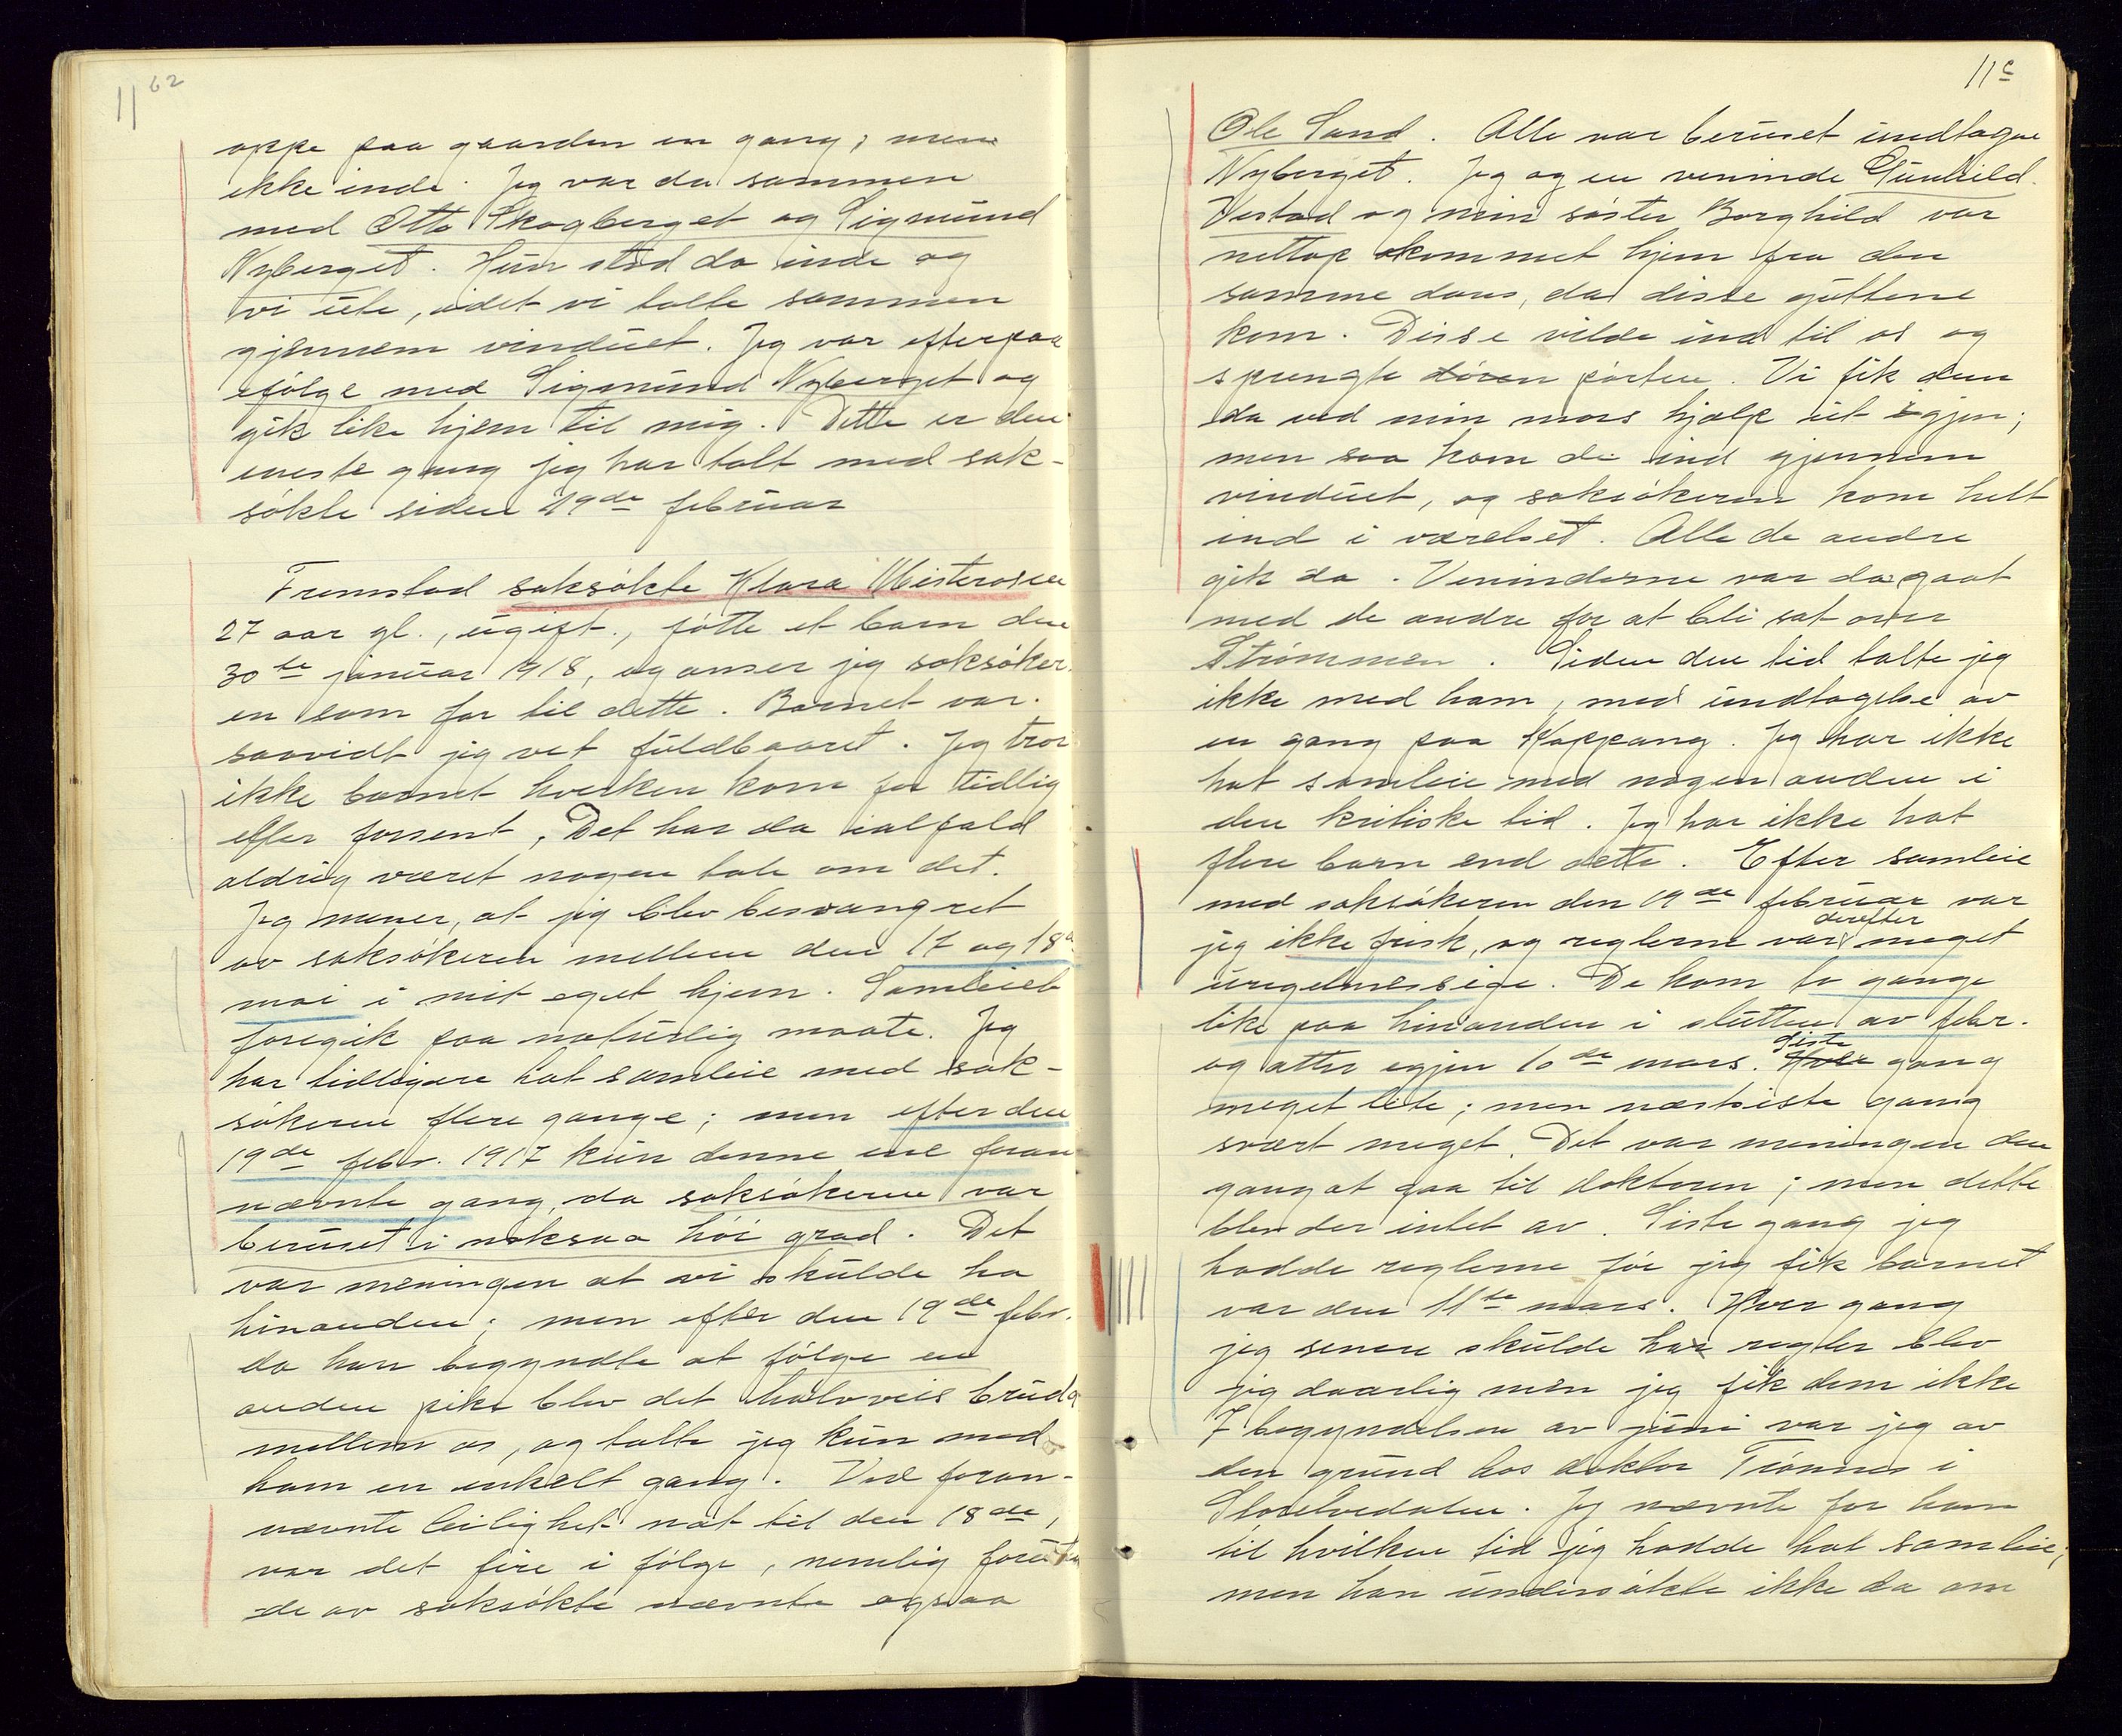 11 62
oppe paa gaarden en gang, men
ikke inde. Jeg var da sammen
med Otto Skogberget og Sigmund
Nyberget. Hun stod da inde og
vi ute, idet vi talte sammen
gjennem vinduet. Jeg var efterpaa
ifølge med Sigmund Nyberget og
gik like hjem til mig. Dette er den
eneste gang jeg har talt med sak-
søkte siden 19de februar
Fremstod saksøkte Klara Misterosen
27 aar gl., ugift, føtte et barn den
30te januar 1918, og anser jeg saksøker-
en som far til dette. Barnet var
saavidt jeg vet fuldbaaret. Jeg tror
ikke barnet hverken kom for tidlig
eller forsent, Det har da ialfald
aldrig været nogen tale om det.
Jeg mener, at jeg blev besvangret
av saksøkeren mellem den 17 og 18de
mai i mit eget hjem. Samleiet
foregik paa naturlig maate. Jeg
har tidligere hat samleie med sak-
søkeren flere gange; men efter den
19de febr. 1917 kun denne ene foran
nævnte gang, da saksøkeren var
beruset i noksaa høi grad. Det
var meningen at vi skulde ha
hinanden; men efter den 19de febr.
da han begyndte at følge en
anden pike blev det halvveis brudd
mellem os, og talte jeg kun med
ham en enkelt gang. Ved foran-
nævnte leilighet nat til den 18de,
var det fire i følge, nemlig foruten
de av saksøkte nævnte ogsaa
11c
Ole Sand. Alle var beruset undtagen
Nyberget. Jeg og en veninde Gunhild
Vestad og min søster Borghild var
nettop kommet hjem fra den
samme dans, da disse guttene
kom. Disse vilde ind til os og
sprengte døren porten. Vi fik dem
da ved min mors hjælp ut igjen;
men saa kom de ind gjennem
vinduet, og saksøkeren kom helt
ind i værelset. Alle de andre
gik da. Veninderne var da gaat
med de andre for at bli sat over
Strømmen. Siden den tid talte jeg
ikke med ham, med undtagelse av
en gang paa Koppang. Jeg har ikke
hat samleie med nogen anden i
den kritiske tid. Jeg har ikke hat
flere barn end dette. Efter samleie
med saksøkeren den 19de februar var
jeg ikke frisk, og reglerne var derefter meget
uregelmessige. De kom to gange
like paa hinanden i slutten av febr.
og atter igjen 10de mars. Hver siste gang
meget lite; men næstsiste gang
svært meget. Det var meningen den
gang at gaa til doktoren; men dette
blev der intet av. Siste gang jeg
hadde reglerne før jeg fik barnet
var den 11te mars. Hver gang
jeg senere skulde ha regler blev
jeg daarlig men jeg fik dem ikke
I begyndelsen av juni var jeg av
den grund hos doktor Trønnes i
Storelvedalen. Jeg nævnte for ham
til hvilken tid jeg hadde hat samleie;
men han undersøkte ikke da om